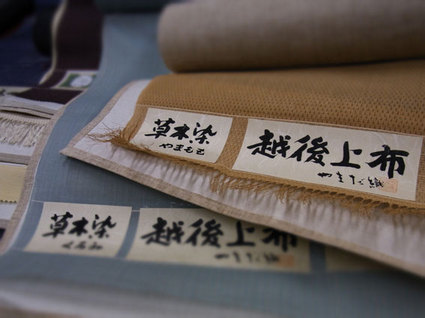 草木染
やまもも
越後上布
やまだ織
草木染
越後上布
やまだ織